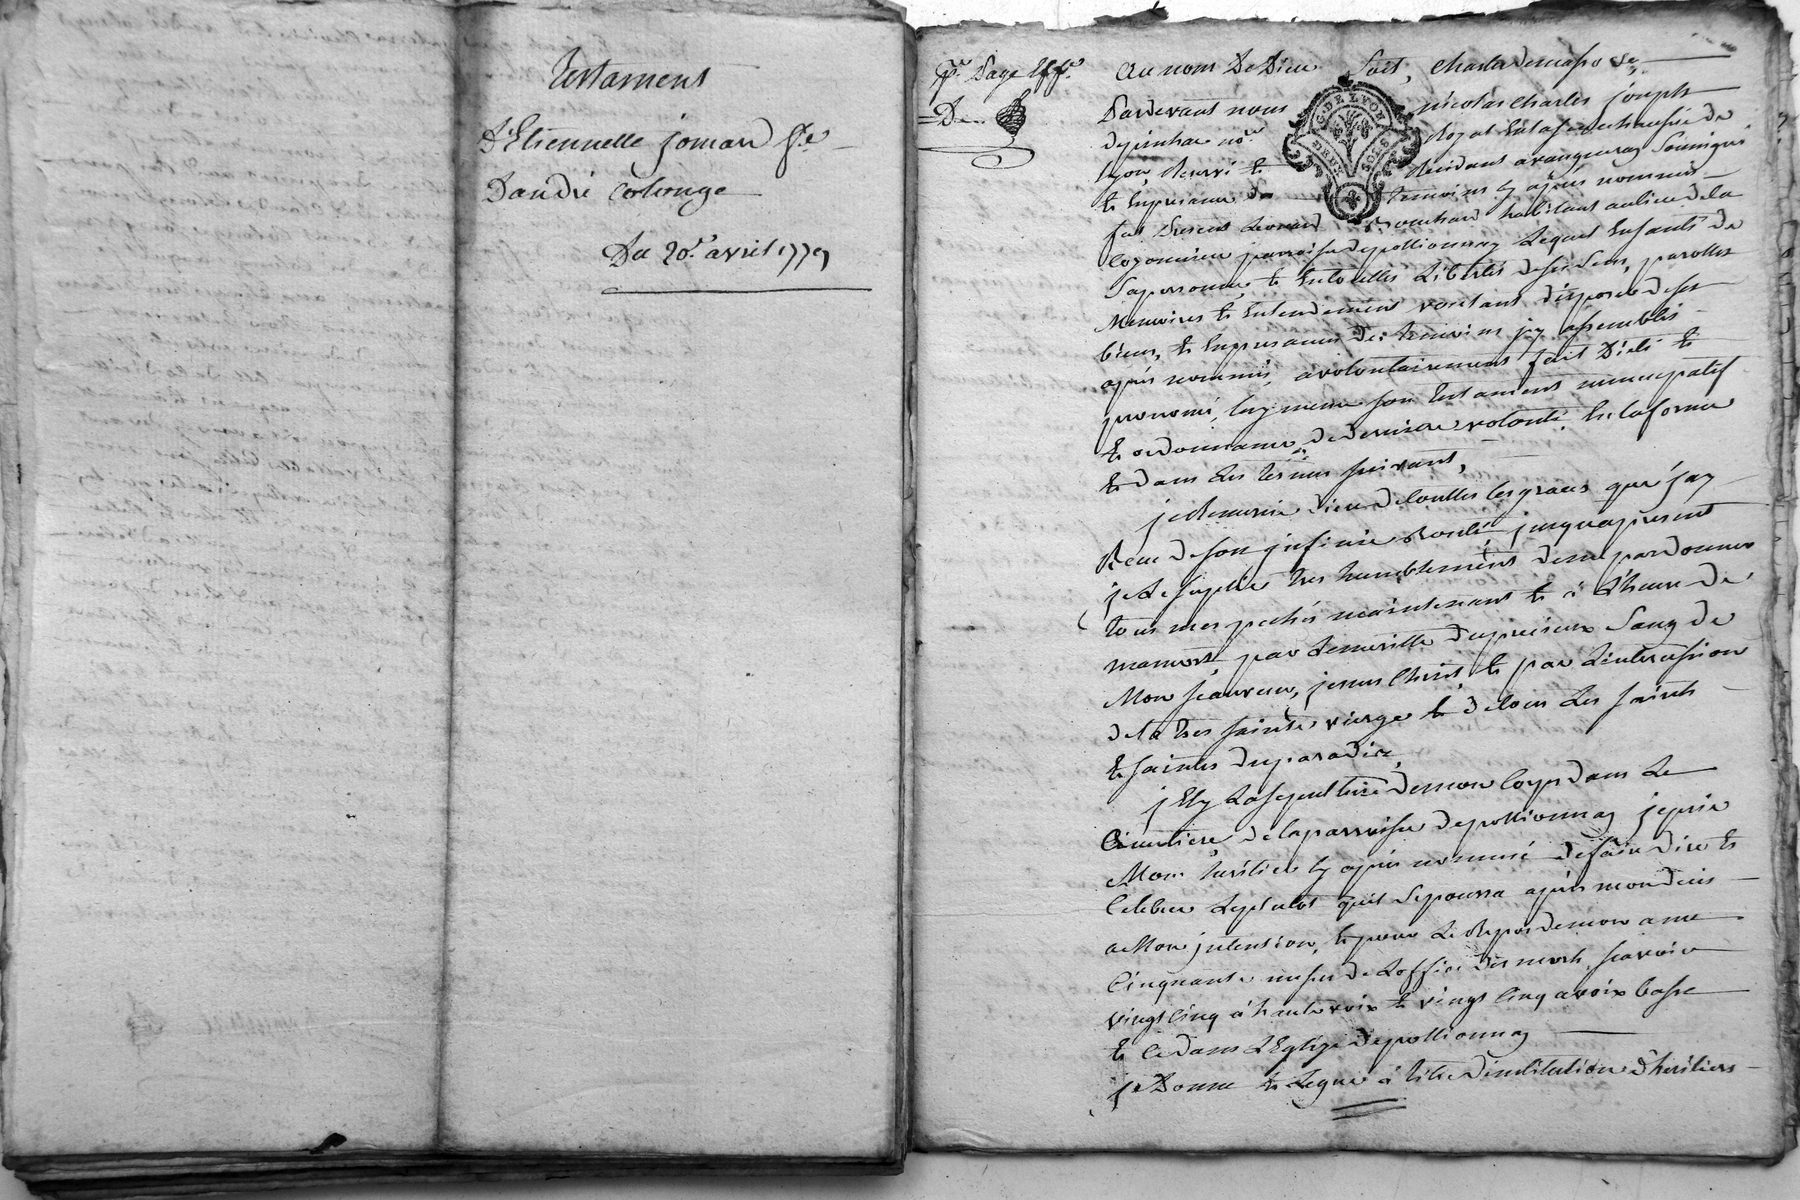 Testament
d'Etiennette jomard f.e
D'andré Colonge
Du 20.e avril 1779
p.re Page
Au nom De Dieu Soit,
G. DE LYON
DEUX SOLS
Pardevant nous nicolas charles joseph
depinhac no.re Royal en la senechaussée de
Lyon residant avaugneray Soussigné
Et En presence des temoins Cy apres nommés
fut Present Leonard Bouchard habitant au lieu de la
parroisse depollionnay Lequel Enfants de
Sapersonne Et En toutes Libertés deses Sens, parolle
Memoires Et Entendement voulant disposer deses
biens, Et En presence Des temoins jcy assemblés
apres nommés, avolontairement fait Dicté Et
prononcé, luy meme son testament nuncupatif
Et ordonnance de derniere volonté En la forme
Et dans Les termes suivant,
je Remercie Dieu detouttes les graces que jay
Receu de son jnfinie Bonté, jusquapresent
je Le supplie tres humblement deme pardonner
tous mes pechés maintenant Et à L'heure de
mamort par Lemeritte duprecieux Sang de
Mon Seauveur, jesus Christ Et par Lintercession
dela tres sainte vierge Et detous Les saints
Et saintes duparadis,
j'Elly Lasepulture demon Corps dans Le
Cimetiere de laparroisse depollionnay jeprie
Mon heritier Cy apres nommé defaire dire Et
Celebrer Leplutot quil Sepourra apres mondeces
a Mon jntention, Et pour Le Repos demon ame
Cinquante messes de Loffice des morts, scavoir
vingt Cinq à hautevoix Et vingt Cinq avoix basse
Et Cedans L'Eglize depollionnay
je Donne Et Legue à titre dinstitution d'heritiers